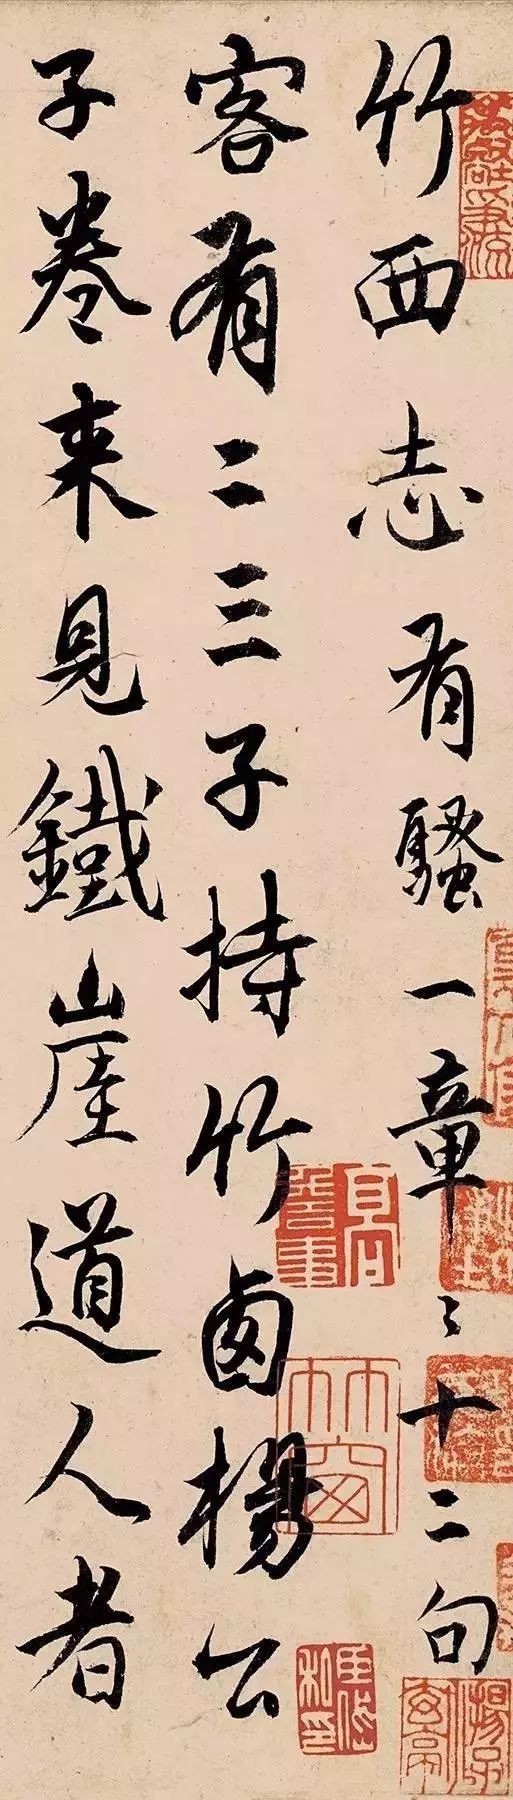 竹西志有騷一章〻十二句
客有二三子持竹𠧧楊公
子卷来見鐵崖道人者